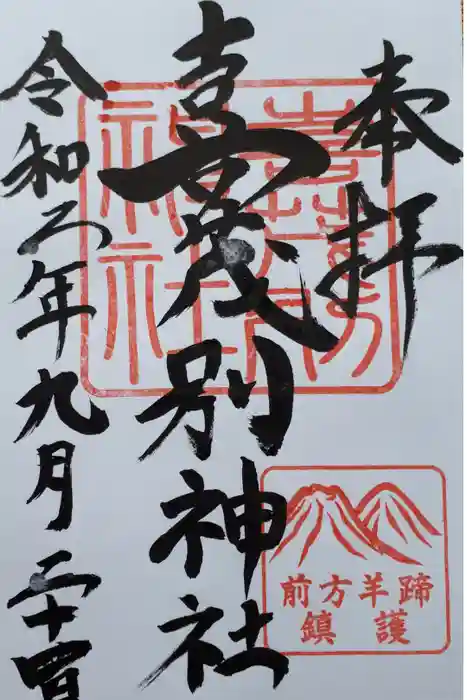 奉拝
喜茂別神社
令和二年九月二十四日
喜茂別神社
蹄羊方前
護鎮